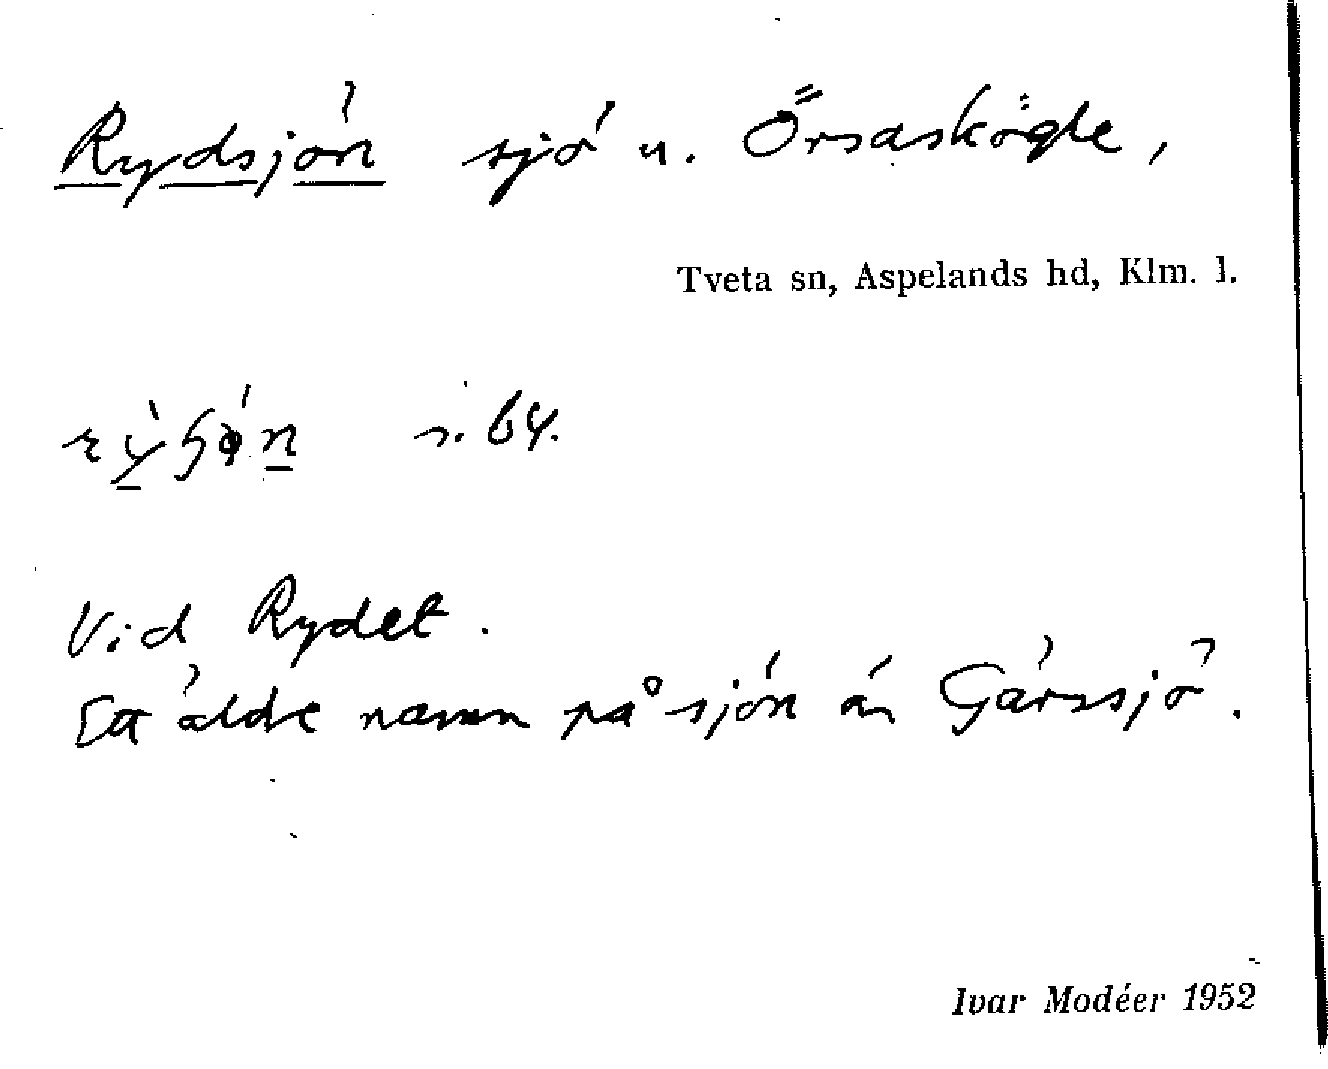 Rydsjön sjö u. Örsaskögle,
Tveta sn, Aspelands hd, Klm. l.
s. 64.
Vid Rydet.
Ett äldre namn på sjön är Gårssjö.
Ivar Modéer 1952